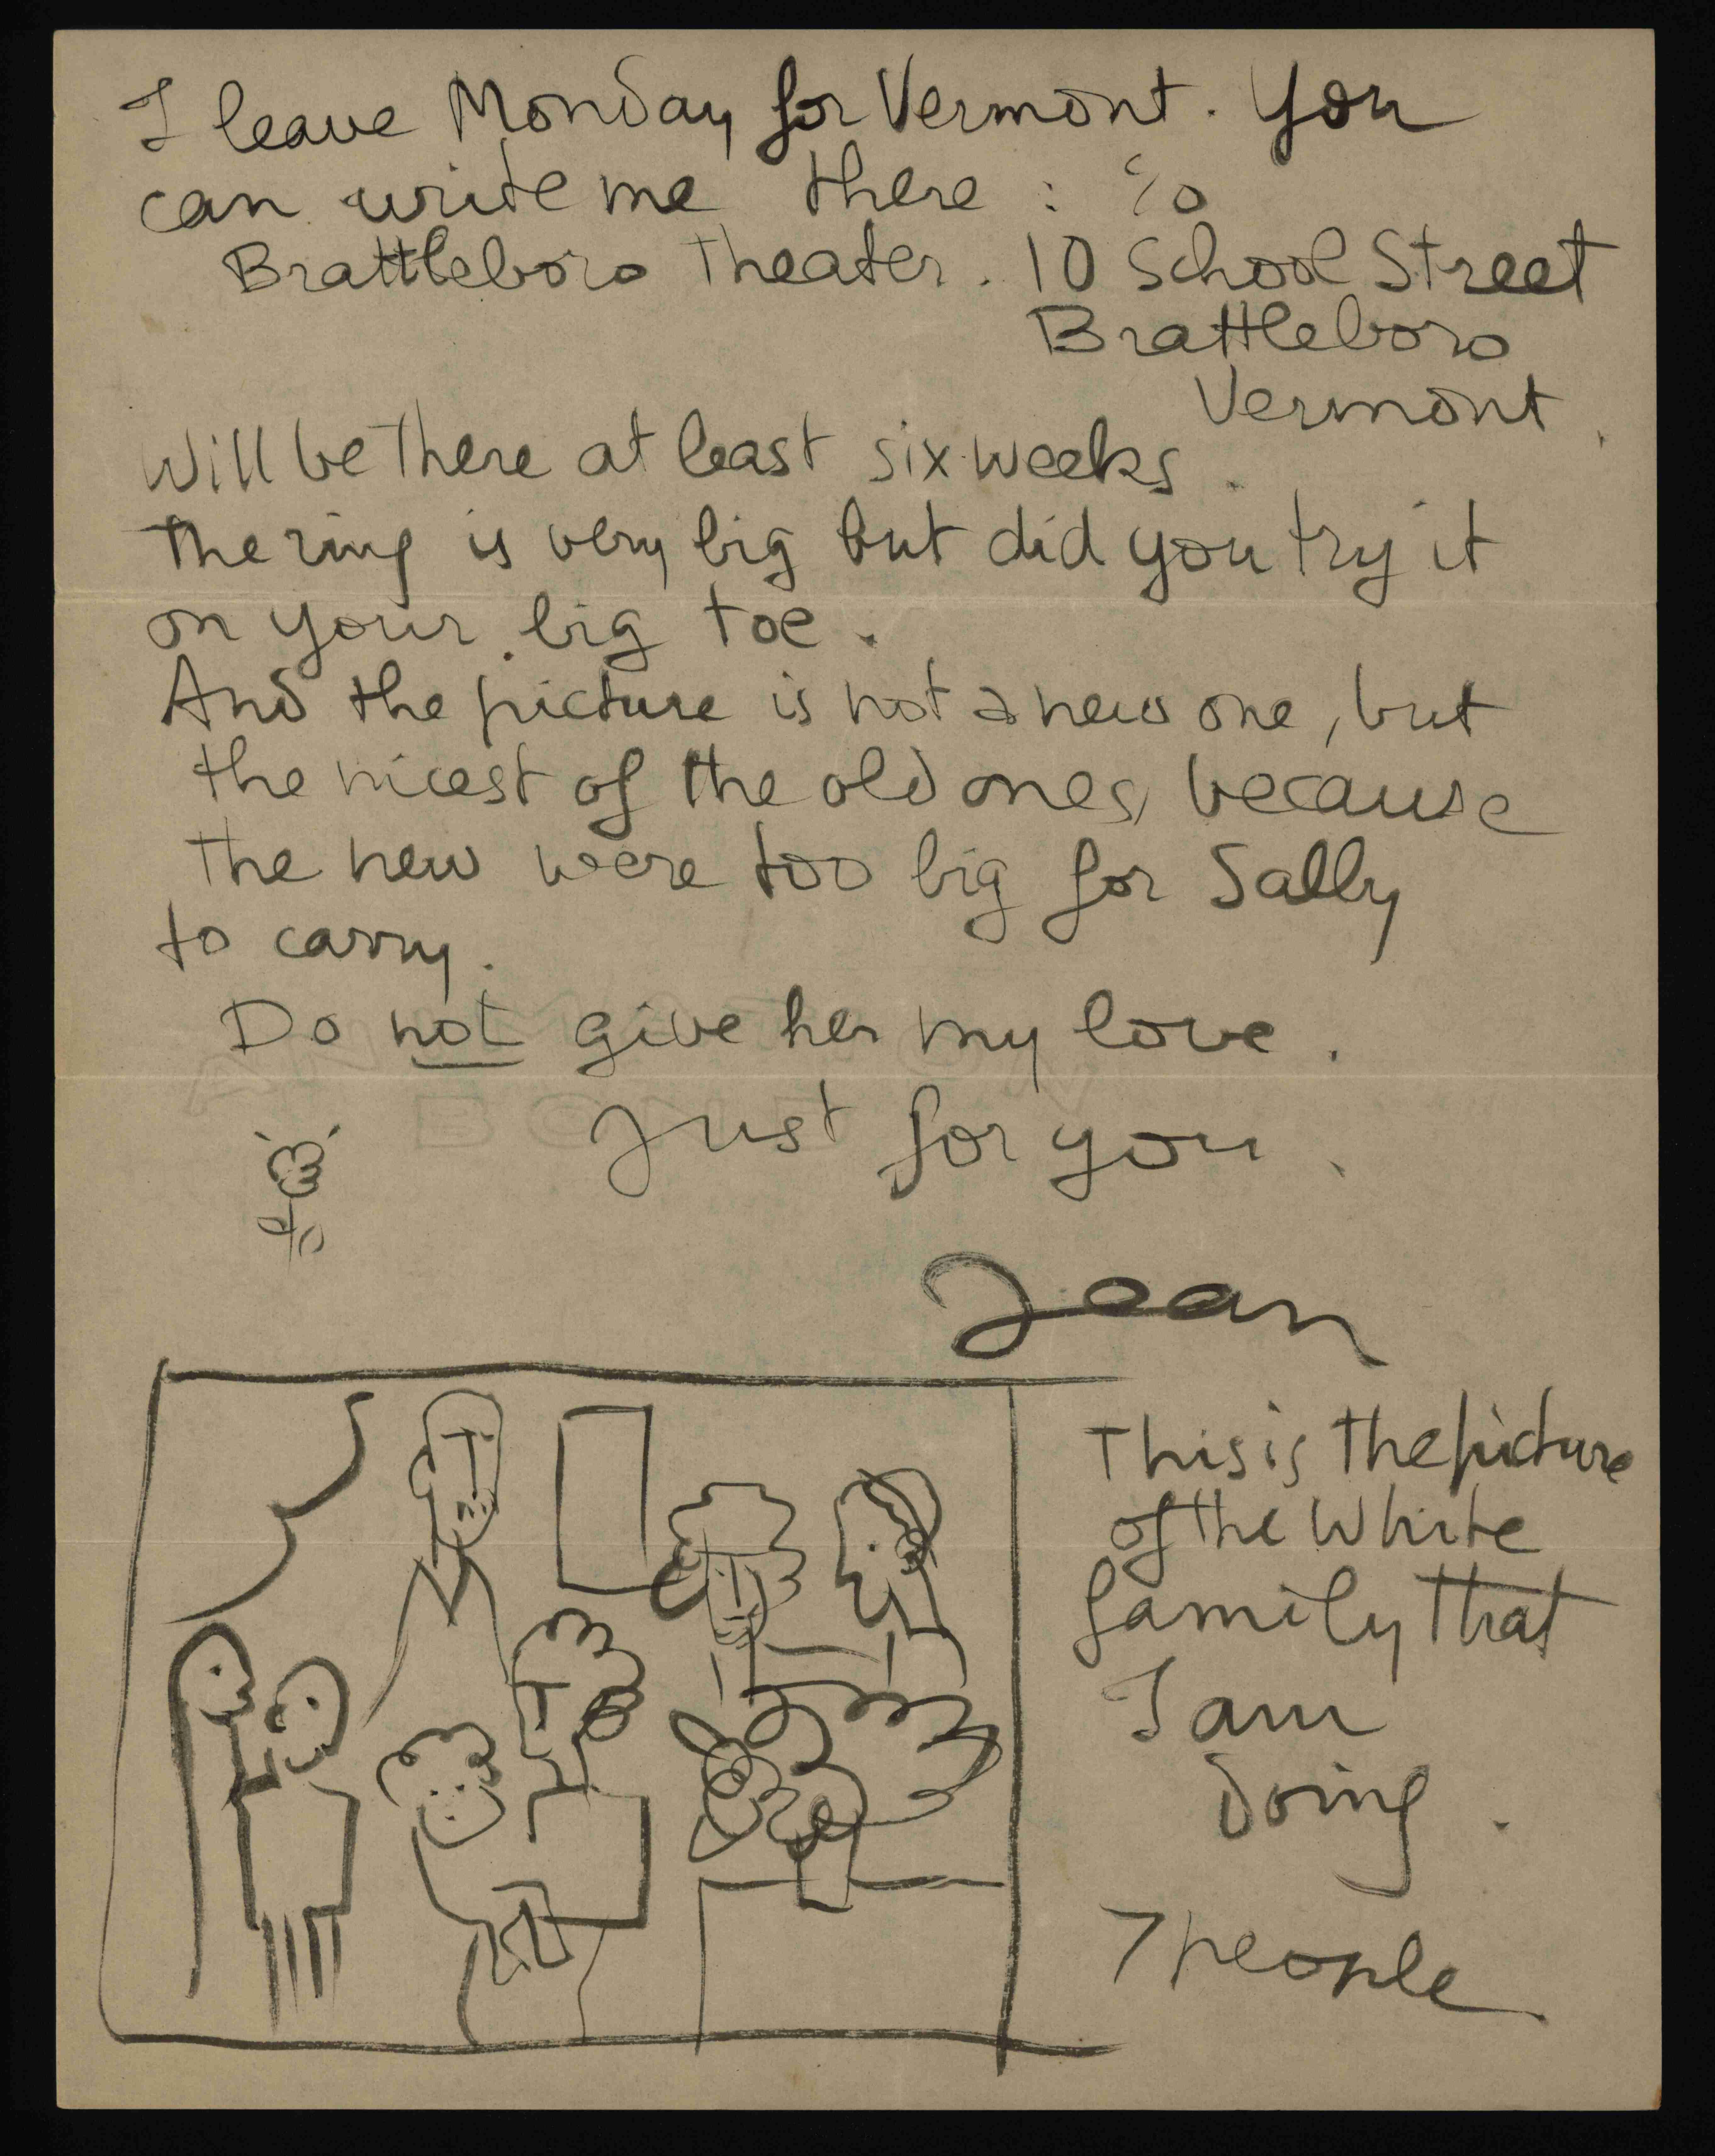 I leave Monday for Vermont. You
can write me there : c/o
Brattleboro Theater. 10 School Street
Brattleboro
Vermont.
Will be there at least six weeks.
The ring is very big but did you try it
on your big toe.
And the picture is not a new one, but
the nicest of the old ones, because
the new were too big for Sally
to carry.
Do not give her my love.
Just for you.
Jean
This is the picture
of the White
family that
I am
doing.
7 people